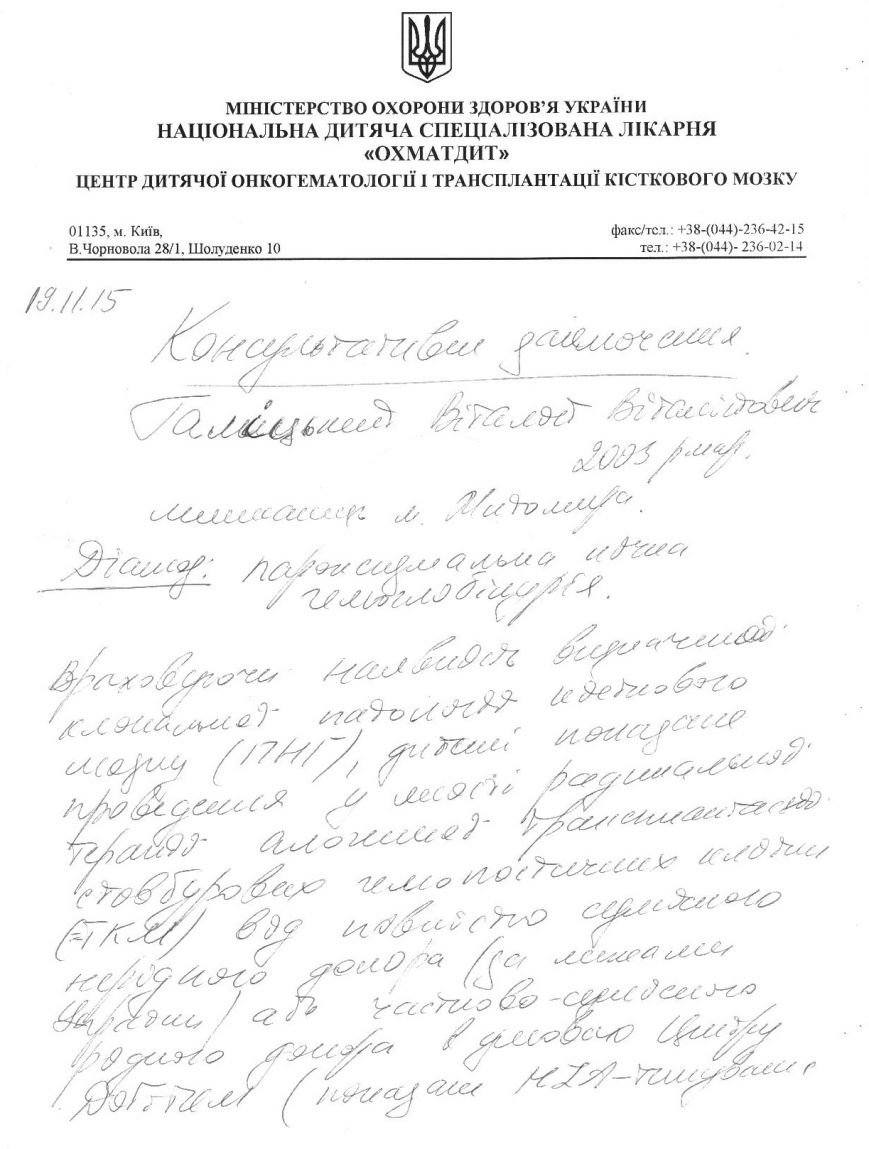 МІНІСТЕРСТВО ОХОРОНИ ЗДОРОВ'Я УКРАЇНИ
НАЦІОНАЛЬНА ДИТЯЧА СПЕЦІАЛІЗОВАНА ЛІКАРНЯ
«ОХМАТДИТ»
ЦЕНТР ДИТЯЧОЇ ОНКОГЕМАТОЛОГІЇ І ТРАНСПЛАНТАЦІЇ КІСТКОВОГО МОЗКУ
01135, м. Київ, факс/тел.: +38-(044)-236-42-15
В.Чорновола 28/1, Шолуденко 10 тел.: +38-(044)- 236-02-14
19.11.15
Консультативне заключення.
Галицький Віталій Віталійович
2003 р.нар.
мешканець м. Житомира.
Діагноз: пароксизмальна нічна
гемоглобінурія.
Враховуючи наявність визначеної
клональної патології кісткового
мозку (ПНГ), дитині показане
проведення у якості радикальної
терапії алогенної трансплантації
стовбурових гемопоетичних клітин
(=ТКМ) від повністю сумісного
нерідного донора (за межами
України) або частково-сумісного
родинного донора в умовах Центру
(показане HLA-типування